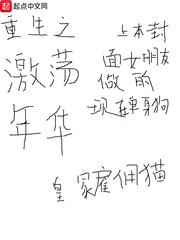 起点 起点中文网
重生之
激荡
年华
上本封
面女朋友
做的
现在单身狗
皇家雇佣猫